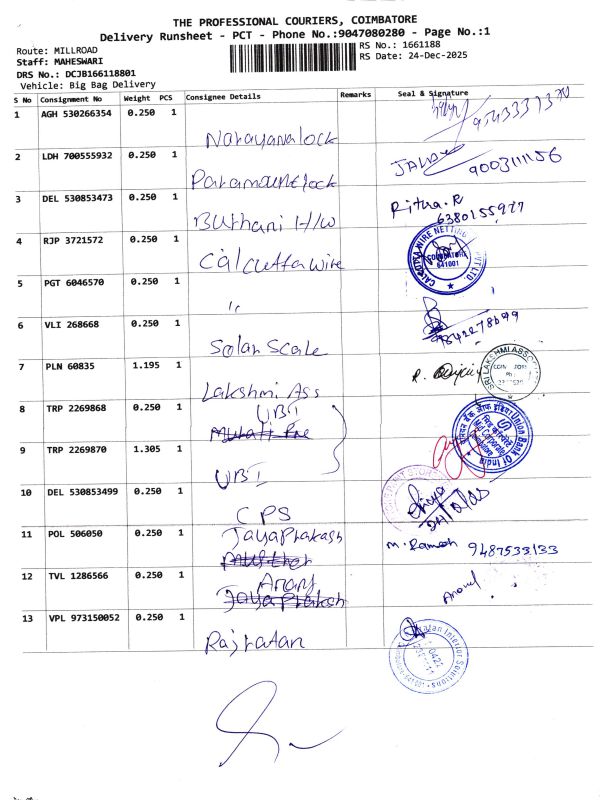 THE PROFESSIONAL COURIERS, COIMBATORE
Delivery Runsheet - PCT - Phone No.:9047080280 - Page No.:1
Route: MILLROAD
Staff: MAHESWARI
DRS No.: DCJB166118801
Vehicle: Big Bag Delivery
RS No.: 1661188
RS Date: 24-Dec-2025
S No Consignment No Weight PCS Consignee Details Remarks Seal & Signature
1 AGH 530266354 0.250 1
Narayanalock
2 LDH 700555932 0.250 1
Paramountlock 9003111156
3 DEL 530853473 0.250 1
Buthani H/W Ritha.R
4 RJP 3721572 0.250 1
Calcuttawire
COIMBATORE
641001
5 PGT 6046570 0.250 1
"
6 VLI 268668 0.250 1
Solar Scale
7 PLN 60835 1.195 1
Lakshmi Ass
SRI LAKSHMI ASSOCI
8 TRP 2269868 0.250 1
UBI
Union Bank of India
9 TRP 2269870 1.305 1
UBI
10 DEL 530853499 0.250 1
CPS
11 POL 506050 0.250 1
Jayaprakash
M. Ramesh 9487533133
12 TVL 1286566 0.250 1
Anany
Jayaprakash
13 VPL 973150052 0.250 1
Rajratan
Interior Solutions